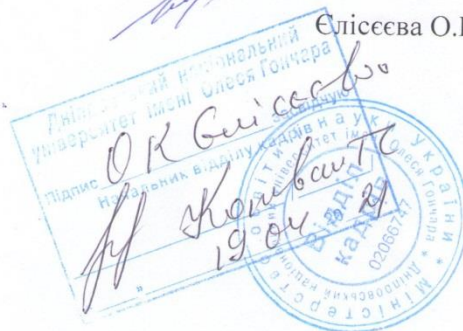 Єлісєєва О.К
Дніпровський національний
університет імені Олеся Гончара
О К Єлісєєво
Підпис засвідчую
Начальник відділу кадрів
19 04 21
Міністерство освіти і науки України
Дніпровський національний університет імені Олеся Гончара
Відділ
кадрів
02066747